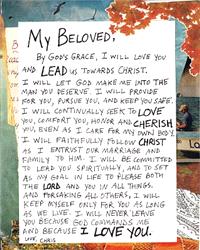 My Beloved,
By God's grace, I will love you
and LEAD us towards Christ.
I will let God make me into the
man you deserve. I will provide
for you, pursue you, and keep you safe.
I will continually seek to LOVE
you, comfort you, honor and CHERISH
you, even as I care for my own body.
I will faithfully follow CHRIST
as I entrust our marriage and
family to Him. I will be committed
to lead you spiritually, and to set
as my goal in life to please both
the LORD and you in all things.
And forsaking all others, I will
keep myself only for you as long
as we live. I will never leave
you because God commands me
and because I LOVE YOU.
Love, Chris